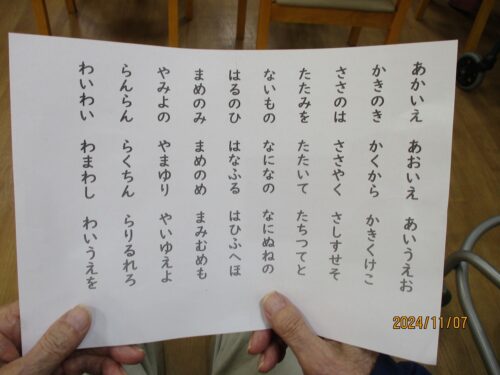 あかいえ あおいえ あいうえお
かきのき かくから かきくけこ
ささのは ささやく さしすせそ
たたみを たたいて たちつてと
ないもの なになの なにぬねの
はるのひ はなふる はひふへほ
まめのみ まめのめ まみむめも
やみよの やまゆり やいゆえよ
らんらん らくちん らりるれろ
わいわい わまわし わいうえを
2024/11/07